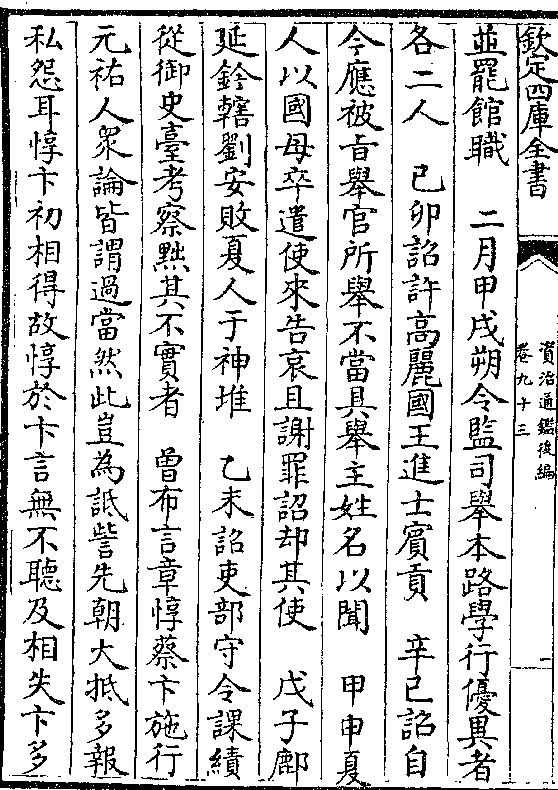 欽定四庫全書
資治通鑑後編
卷九十三
一
並罷館職　二月甲戌朔令監司舉本路學行優異者
各二人　己卯詔許高麗國王進士賓貢　辛巳詔自
今應被旨舉官所舉不當具舉主姓名以聞　甲申夏
人以國母卒遣使來告哀且謝罪詔却其使　戊子鄜
延鈐轄劉安敗夏人于神堆　乙未詔吏部守令課績
從御史臺考察黜其不實者　曾布言章惇蔡卞施行
元祐人衆論皆謂過當然此豈為詆訾先朝大抵多報
私怨耳惇卞初相得故惇於卞言無不聽及相失卞多